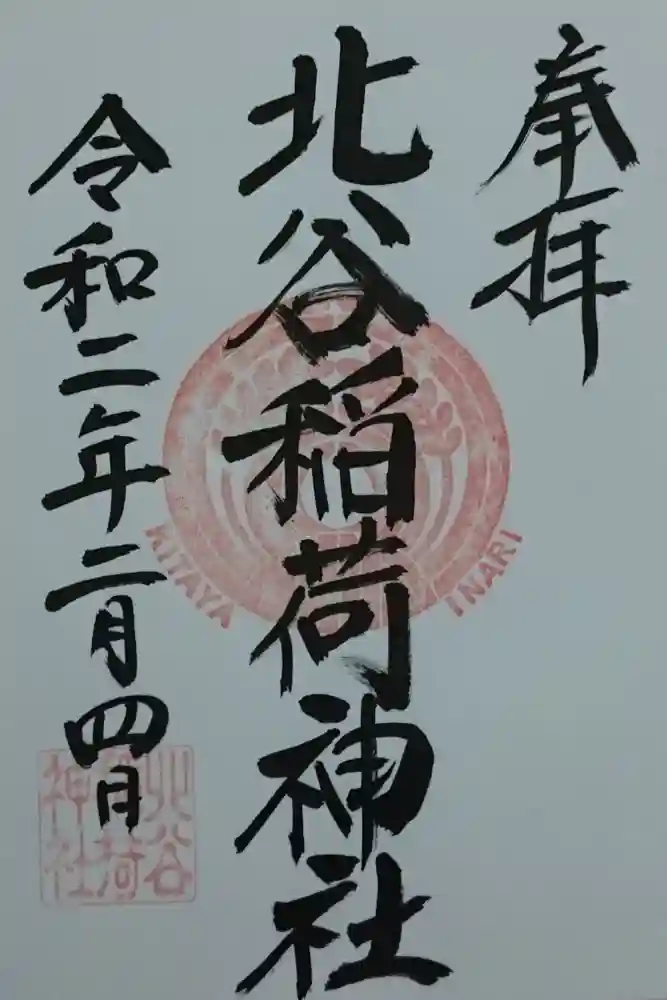 奉拝
北谷稲荷神社
令和二年二月四日
KITAYA INARI
北谷
稲荷
神社